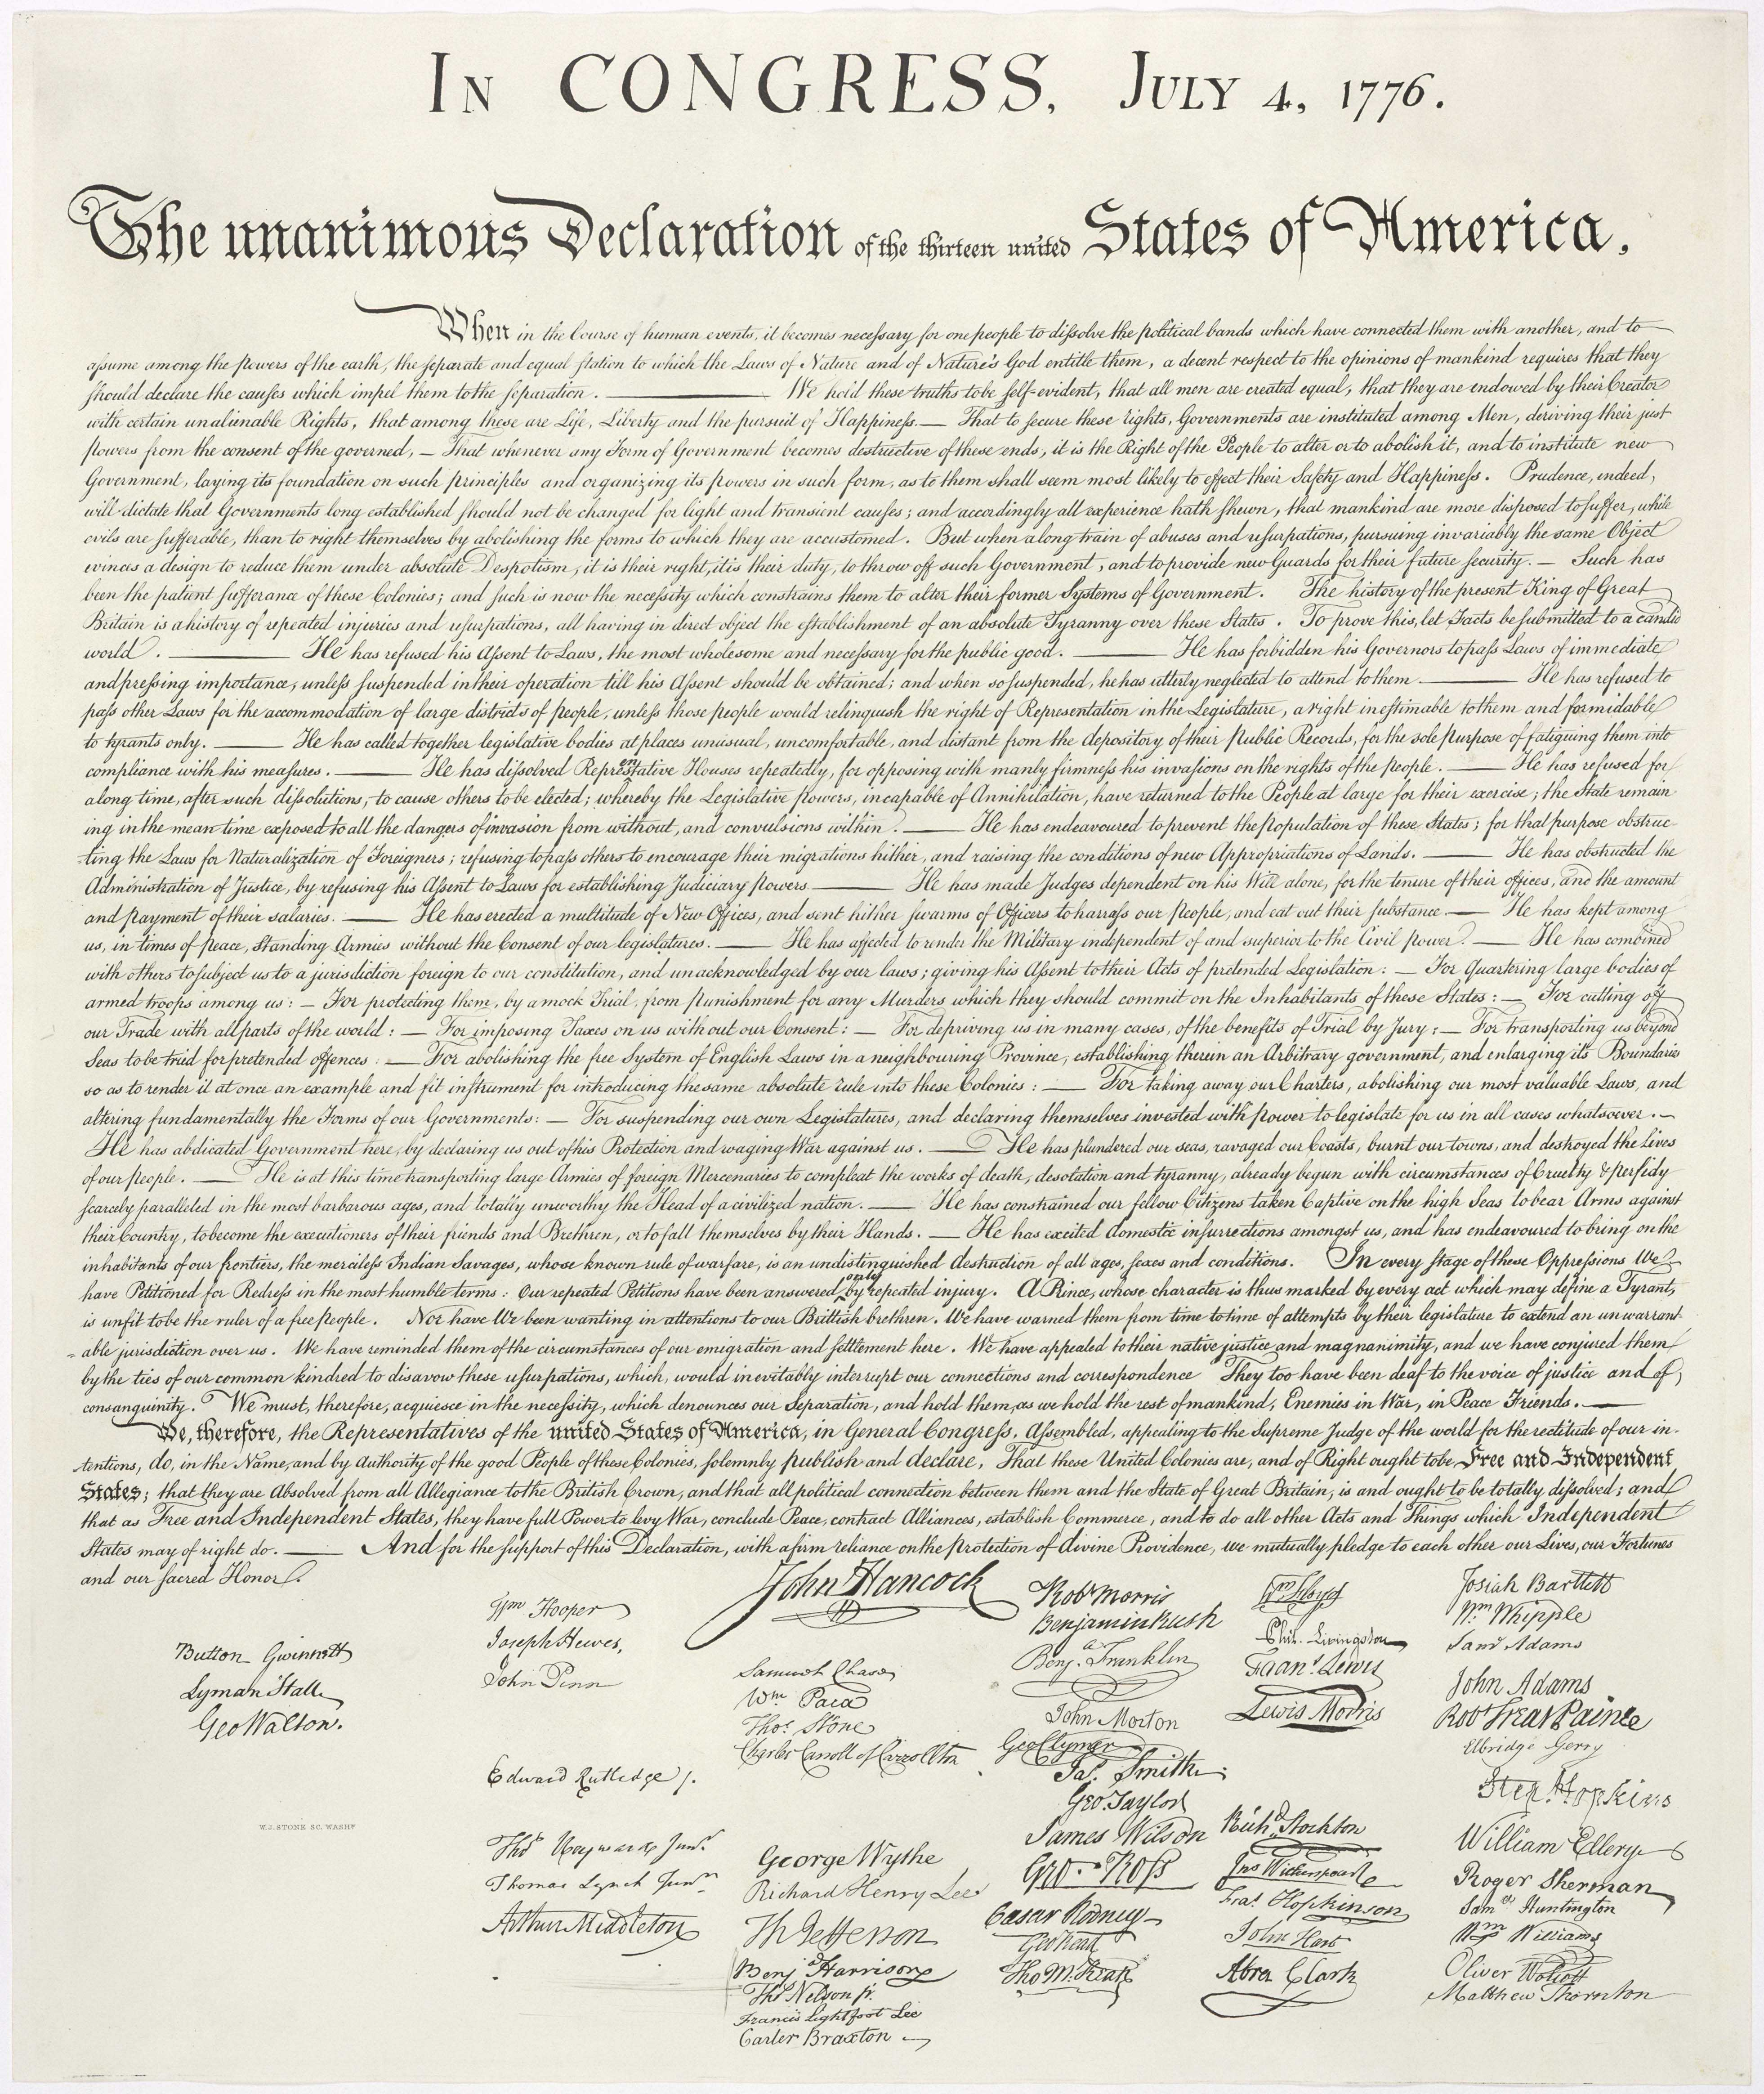 In CONGRESS, July 4, 1776.
The unanimous Declaration of the thirteen united States of America,
When in the Course of human events, it becomes necessary for one people to dissolve the political bands which have connected them with another, and to
assume among the powers of the earth, the separate and equal station to which the Laws of Nature and of Nature's God entitle them, a decent respect to the opinions of mankind requires that they
should declare the causes which impel them to the separation. ——— We hold these truths to be self-evident, that all men are created equal, that they are endowed by their Creator
with certain unalienable Rights, that among these are Life, Liberty and the pursuit of Happiness.— That to secure these rights, Governments are instituted among Men, deriving their just
powers from the consent of the governed, — That whenever any Form of Government becomes destructive of these ends, it is the Right of the People to alter or to abolish it, and to institute new
Government, laying its foundation on such principles and organizing its powers in such form, as to them shall seem most likely to effect their Safety and Happiness. Prudence, indeed,
will dictate that Governments long established should not be changed for light and transient causes; and accordingly all experience hath shewn, that mankind are more disposed to suffer, while
evils are sufferable, than to right themselves by abolishing the forms to which they are accustomed. But when a long train of abuses and usurpations, pursuing invariably the same Object
evinces a design to reduce them under absolute Despotism, it is their right, it is their duty, to throw off such Government, and to provide new Guards for their future security. — Such has
been the patient sufferance of these Colonies; and such is now the necessity which constrains them to alter their former Systems of Government. The history of the present King of Great
Britain is a history of repeated injuries and usurpations, all having in direct object the establishment of an absolute Tyranny over these States. To prove this, let Facts be submitted to a candid
world. ——— He has refused his Assent to Laws, the most wholesome and necessary for the public good. ——— He has forbidden his Governors to pass Laws of immediate
and pressing importance, unless suspended in their operation till his Assent should be obtained; and when so suspended, he has utterly neglected to attend to them. ——— He has refused to
pass other Laws for the accommodation of large districts of people, unless those people would relinquish the right of Representation in the Legislature, a right inestimable to them and formidable
to tyrants only. ——— He has called together legislative bodies at places unusual, uncomfortable, and distant from the depository of their Public Records, for the sole purpose of fatiguing them into
compliance with his measures. ——— He has dissolved Representative Houses repeatedly, for opposing with manly firmness his invasions on the rights of the people. ——— He has refused for
a long time, after such dissolutions, to cause others to be elected; whereby the Legislative powers, incapable of Annihilation, have returned to the People at large for their exercise; the State remain
ing in the mean time exposed to all the dangers of invasion from without, and convulsions within. ——— He has endeavoured to prevent the population of these States; for that purpose obstruc-
ting the Laws for Naturalization of Foreigners; refusing to pass others to encourage their migrations hither, and raising the conditions of new Appropriations of Lands. ——— He has obstructed the
Administration of Justice, by refusing his Assent to Laws for establishing Judiciary powers. ——— He has made Judges dependent on his Will alone, for the tenure of their offices, and the amount
and payment of their salaries. ——— He has erected a multitude of New Offices, and sent hither swarms of Officers to harrass our people, and eat out their substance. — He has kept among
us, in times of peace, Standing Armies without the Consent of our legislatures. ——— He has affected to render the Military independent of and superior to the Civil power. — He has combined
with others to subject us to a jurisdiction foreign to our constitution, and unacknowledged by our laws; giving his Assent to their Acts of pretended Legislation: — For Quartering large bodies of
armed troops among us: — For protecting them, by a mock Trial, from punishment for any Murders which they should commit on the Inhabitants of these States: — For cutting off
our Trade with all parts of the world: — For imposing Taxes on us without our Consent: — For depriving us in many cases, of the benefits of Trial by Jury: — For transporting us beyond
Seas to be tried for pretended offences: — For abolishing the free System of English Laws in a neighbouring Province, establishing therein an Arbitrary government, and enlarging its Boundaries
so as to render it at once an example and fit instrument for introducing the same absolute rule into these Colonies: — For taking away our Charters, abolishing our most valuable Laws, and
altering fundamentally the Forms of our Governments: — For suspending our own Legislatures, and declaring themselves invested with power to legislate for us in all cases whatsoever. —
He has abdicated Government here, by declaring us out of his Protection and waging War against us. — He has plundered our seas, ravaged our Coasts, burnt our towns, and destroyed the lives
of our people. — He is at this time transporting large Armies of foreign Mercenaries to compleat the works of death, desolation and tyranny, already begun with circumstances of Cruelty & perfidy
scarcely paralleled in the most barbarous ages, and totally unworthy the Head of a civilized nation. — He has constrained our fellow Citizens taken Captive on the high Seas to bear Arms against
their Country, to become the executioners of their friends and Brethren, or to fall themselves by their Hands. — He has excited domestic insurrections amongst us, and has endeavoured to bring on the
inhabitants of our frontiers, the merciless Indian Savages, whose known rule of warfare, is an undistinguished destruction of all ages, sexes and conditions. In every stage of these Oppressions We
have Petitioned for Redress in the most humble terms: Our repeated Petitions have been answered only by repeated injury. A Prince, whose character is thus marked by every act which may define a Tyrant,
is unfit to be the ruler of a free people. Nor have We been wanting in attentions to our Brittish brethren. We have warned them from time to time of attempts by their legislature to extend an unwarrant-
able jurisdiction over us. We have reminded them of the circumstances of our emigration and settlement here. We have appealed to their native justice and magnanimity, and we have conjured them
by the ties of our common kindred to disavow these usurpations, which, would inevitably interrupt our connections and correspondence They too have been deaf to the voice of justice and of
consanguinity. We must, therefore, acquiesce in the necessity, which denounces our Separation, and hold them, as we hold the rest of mankind, Enemies in War, in Peace Friends. —
We, therefore, the Representatives of the united States of America, in General Congress, Assembled, appealing to the Supreme Judge of the world for the rectitude of our in-
tentions, do, in the Name, and by Authority of the good People of these Colonies, solemnly publish and declare, That these United Colonies are, and of Right ought to be Free and Independent
States; that they are Absolved from all Allegiance to the British Crown, and that all political connection between them and the State of Great Britain, is and ought to be totally dissolved; and
that as Free and Independent States, they have full Power to levy War, conclude Peace, contract Alliances, establish Commerce, and to do all other Acts and Things which Independent
States may of right do. — And for the support of this Declaration, with a firm reliance on the protection of divine Providence, we mutually pledge to each other our Lives, our Fortunes
and our sacred Honor.
Button Gwinnett
Lyman Hall
Geo Walton.
W.J. STONE SC. WASHN
Wm Hooper
Joseph Hewes,
John Penn
Edward Rutledge /.
Thos Heyward Junr.
Thomas Lynch Junr.
Arthur Middleton
John Hancock
Samuel Chase
Wm. Paca
Thos. Stone
Charles Carroll of Carrollton
George Wythe
Richard Henry Lee
Th Jefferson
Benj Harrison
Thos Nelson jr.
Francis Lightfoot Lee
Carter Braxton
Robt Morris
Benjamin Rush
Benj. Franklin
John Morton
Geo Clymer
Jas. Smith
Geo. Taylor
James Wilson
Geo. Ross
Caesar Rodney
Geo Read
Tho M:Kean
Wm Floyd
Phil. Livingston
Frans. Lewis
Lewis Morris
Richd. Stockton
Jno Witherspoon
Fras. Hopkinson
John Hart
Abra Clark
Josiah Bartlett
Wm. Whipple
Saml Adams
John Adams
Robt Treat Paine
Elbridge Gerry
Step. Hopkins
William Ellery
Roger Sherman
Saml. Huntington
Wm. Williams
Oliver Wolcott
Matthew Thornton